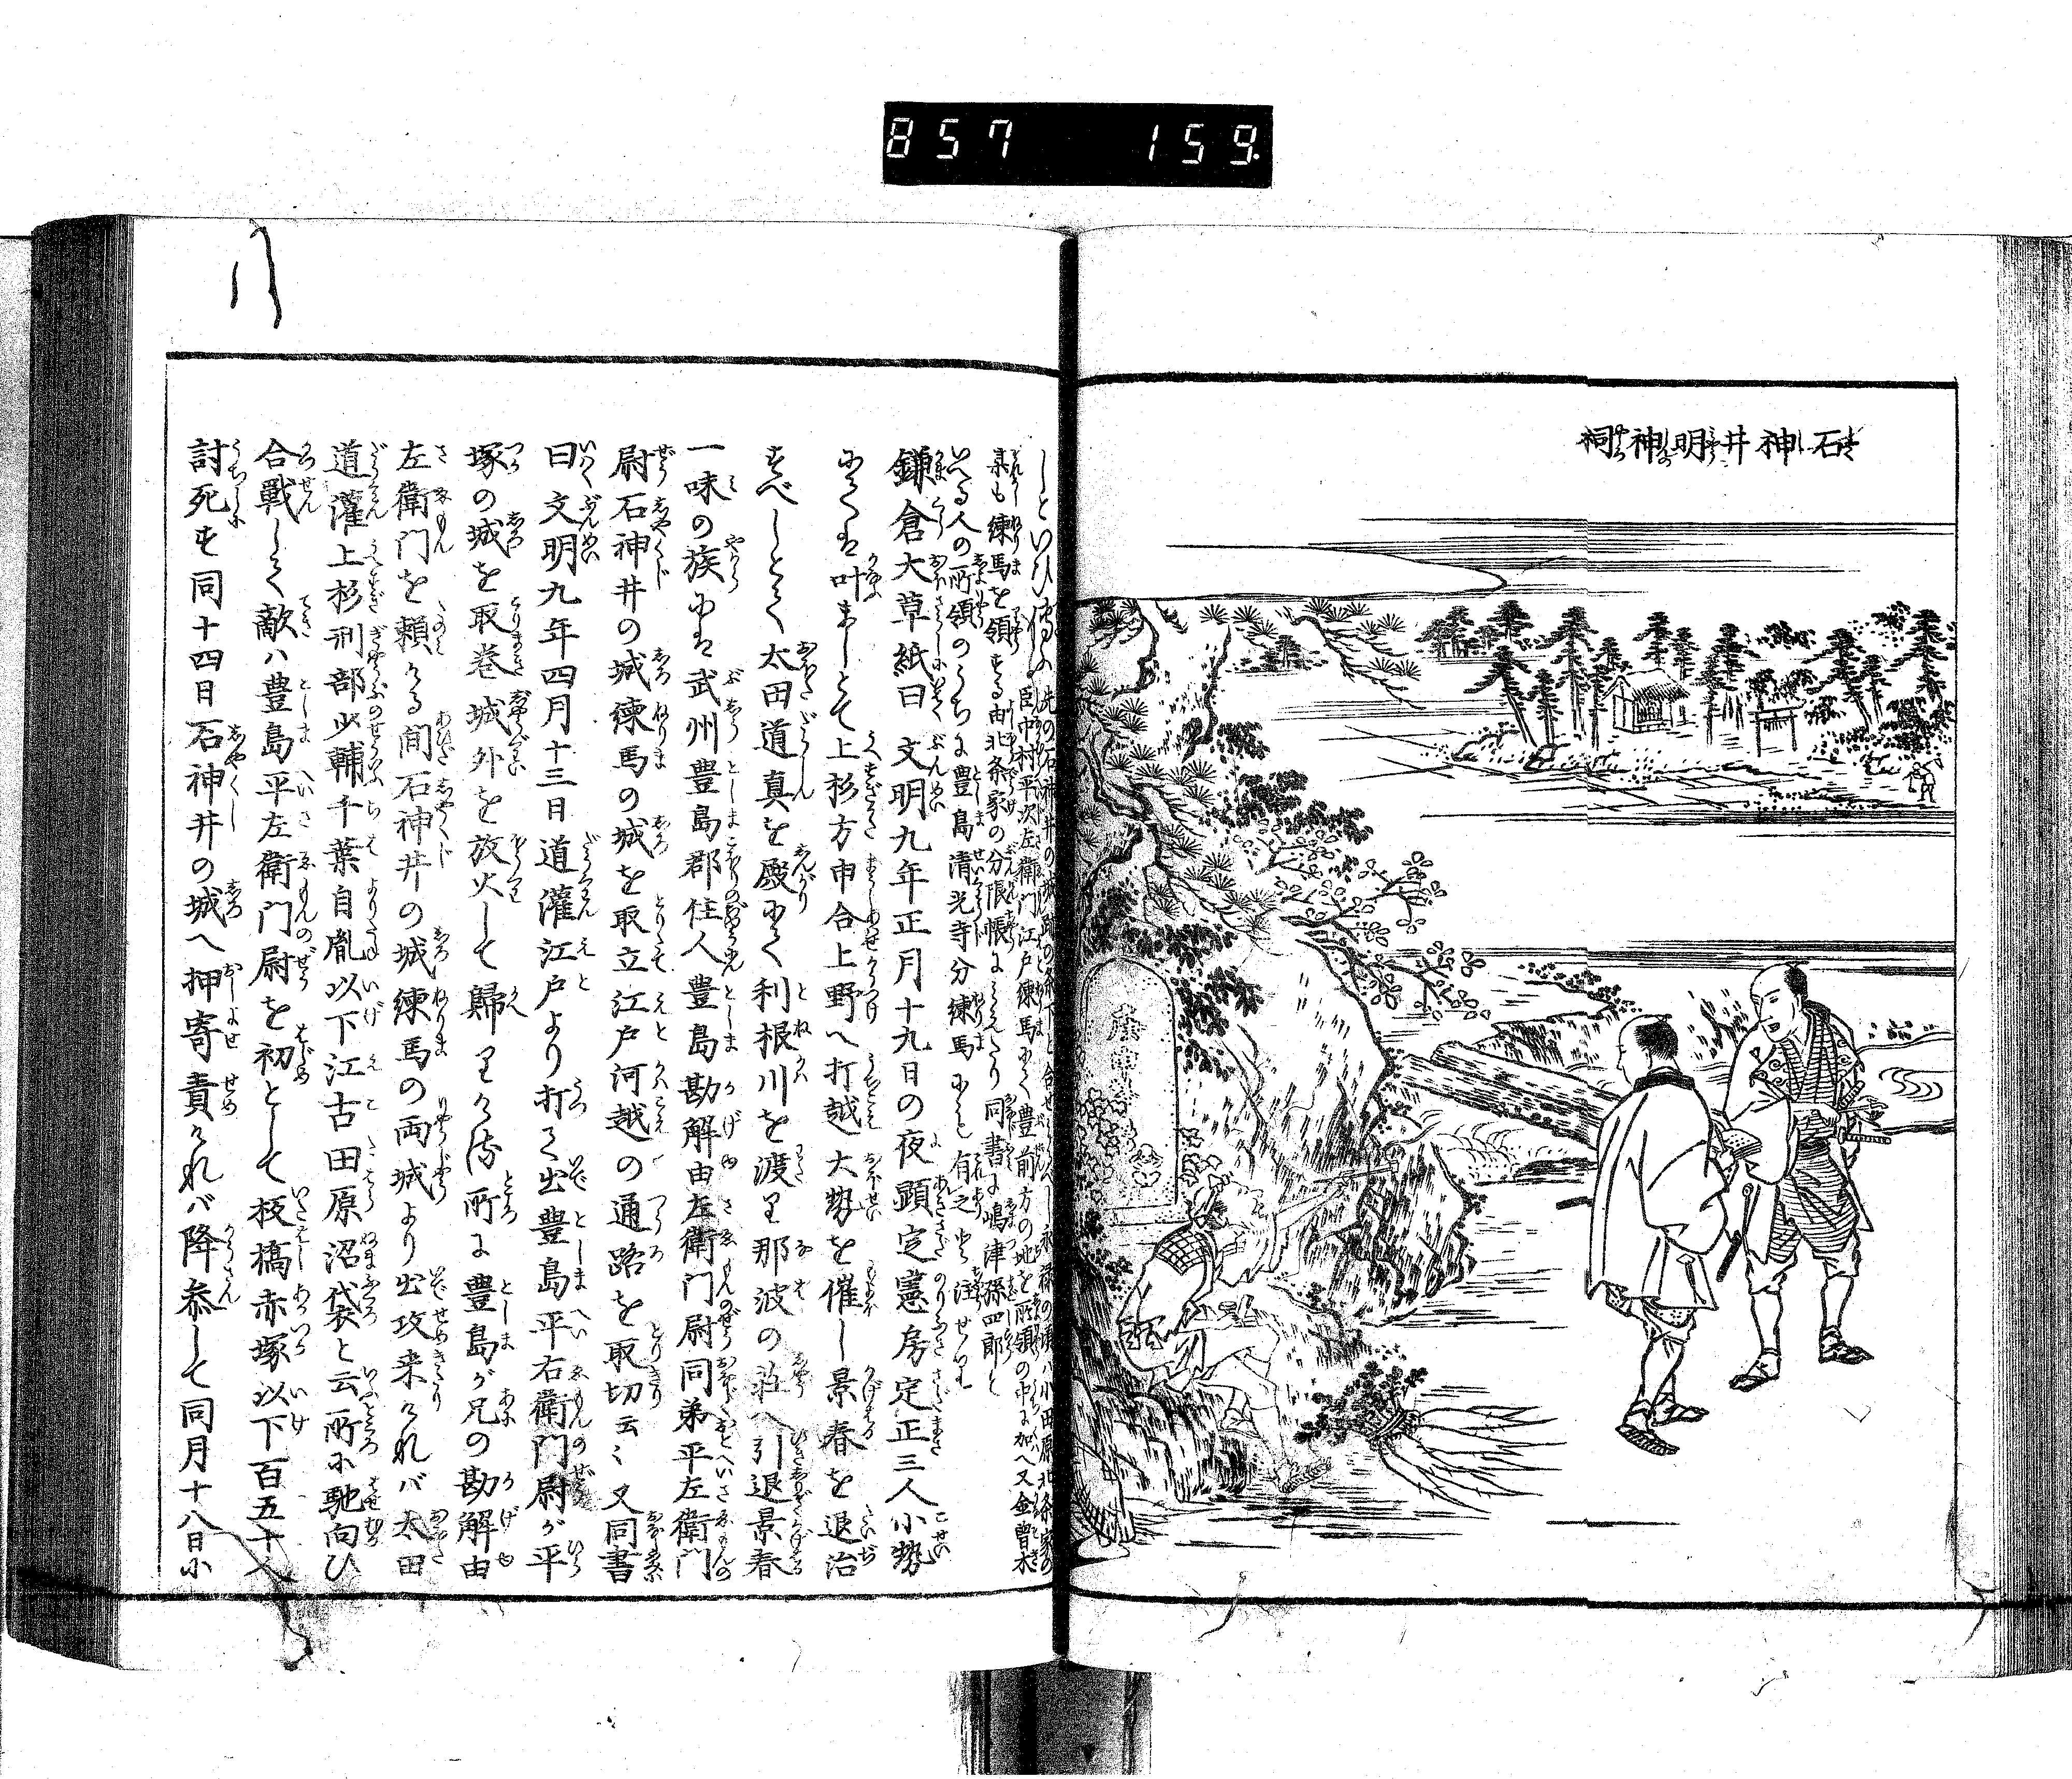 857 159
石神井明神祠
庚申
しといひ伝ふ 先の石神井の城跡の条下と合せ見るべし永禄の頃ハ小田原北条家の
臣中村平次左衛門江戸練馬にて豊前方の地を所領の中に加へ又金曽木
某も練馬を領する由北条家の分限帳にみえたり同書に嶋津孫四郎と
いへる人の所領のうちに豊島清光寺分練馬にて有之と注せり
鎌倉大草紙曰文明九年正月十九日の夜顕定憲房定正三人小勢
にてハ叶ましとて上杉方申合上野へ打越大勢を催し景春を退治
すべしとて太田道真を殿にて利根川を渡り那波の荘へ引退景春
一味の族にハ武州豊島郡住人豊島勘解由左衛門尉同弟平左衛門
尉石神井の城練馬の城を取立江戸河越の通路を取切云々又同書
曰文明九年四月十三日道灌江戸より打て出豊島平右衛門尉が平
塚の城を取巻城外を放火して帰りける所に豊島が兄の勘解由
左衛門を頼ける間石神井の城練馬の両城より出攻来けれバ太田
道灌上杉刑部少輔千葉自胤以下江古田原沼袋と云所に馳向ひ
合戦して敵ハ豊島平左衛門尉を初として板橋赤塚以下百五十人
討死す同十四日石神井の城へ押寄責けれバ降参して同月十八日に